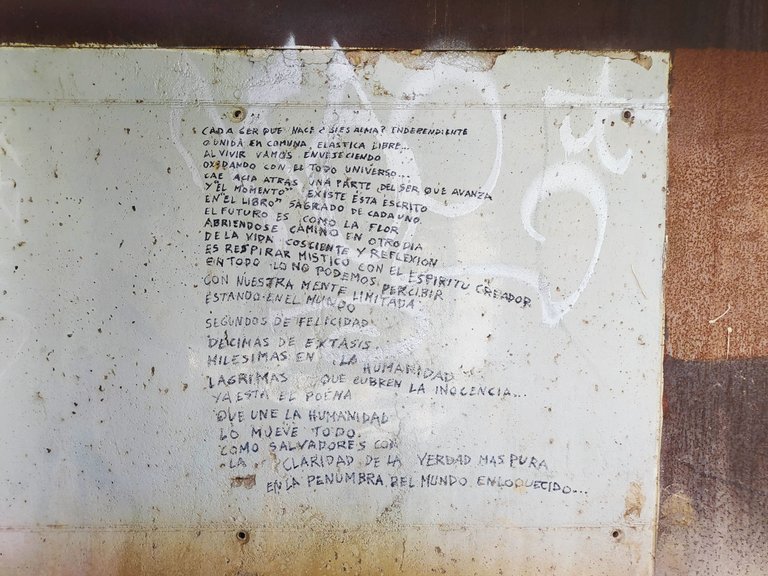 CADA SER QUE NACE ¿SIES ALMA? INDEPENDIENTE
O UNIDA EN COMUNA, ELASTICA LIBRE...
AL VIVIR VAMOS ENVEJECIENDO
OXIDANDO CON EL TODO UNIVERSO...
CAE ACIA ATRAS UNA PARTE DEL SER QUE AVANZA
Y"EL MOMENTO" EXISTE ESTA ESCRITO
EN"EL LIBRO" SAGRADO DE CADA UNO.
EL FUTURO ES COMO LA FLOR
ABRIENDOSE CAMINO EN OTRO DIA
DE LA VIDA COSCIENTE Y REFLEXION
ES RESPIRAR MISTICO CON EL ESPIRITU CREADOR
EN TODO LO NO PODEMOS PERCIBIR
CON NUESTRA MENTE LIMITADA.
ESTANDO EN EL MUNDO
SEGUNDOS DE FELICIDAD
DECIMAS DE EXTASIS.
MILESIMAS EN LA HUMANIDAD
LAGRIMAS QUE CUBREN LA INOCENCIA...
YA ESTA EL POEMA
QUE UNE LA HUMANIDAD
LO MUEVE TODO.
COMO SALVADORES CON
LA CLARIDAD DE LA VERDAD MAS PURA
EN LA PENUMBRA DEL MUNDO ENLOQUECIDO...